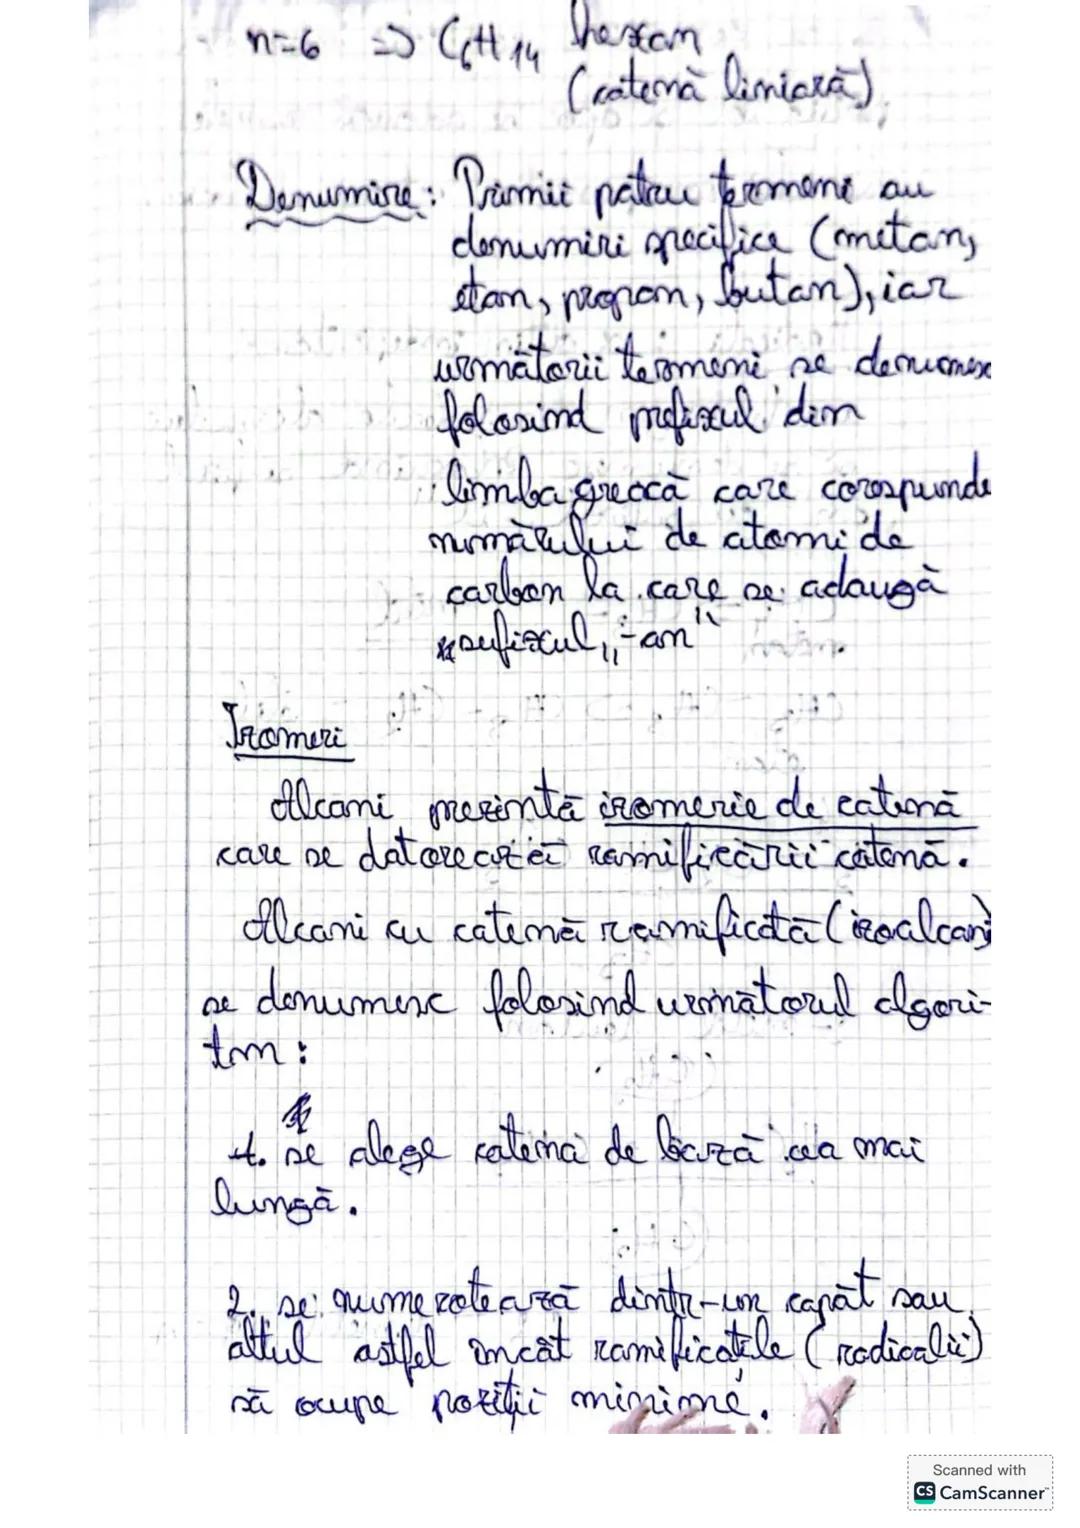 n=6 => C6H14 hexan
(catenă liniară)
Denumire: Primii patru termeni au
denumiri specifice (metan,
etan, propan, butan), iar
următorii termeni se denumesc
folosind prefixul din
limba greacă care corespunde
numărului de atomi de
carbon la care se adaugă
sufixul „-an"
Izomeri
Alcani prezintă izomerie de catenă
care se datorează ramificării catenă.
Alcani cu catenă ramificată (izoalcani
se denumesc folosind următorul algori-
tm:
1. se alege catena de bază cea mai
lungă.
2. se numerotează dintr-un capăt sau
altul astfel încât ramificatile (radicalii)
să ocupe poziții minime.
Scanned with
CS CamScanner